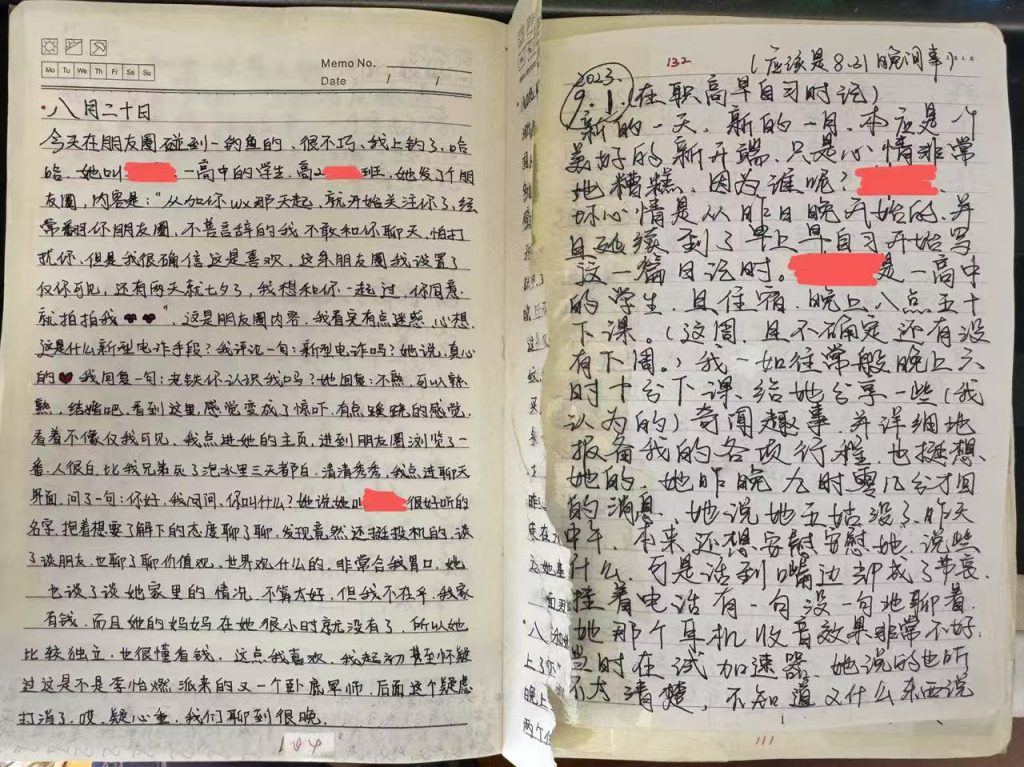 Memo No.
Mo Tu We Th Fr Sa Su
Date / /
八月二十日
今天在朋友圈碰到一钓鱼的、很不巧、我上钓了、哈
哈、她叫 一高中的学生、高2 班、她发了个朋
友圈,内容是:"从加你wx那天起,就开始关注你了,经
常翻你朋友圈、不善言辞的我不敢和你聊天、怕打
扰你、但是我很确信这是喜欢、这条朋友圈我设置了
仅你可见,还有两天就七夕了,我想和你一起过、你同意
就拍拍我♥♥"、这是朋友圈内容、我看完有点迷惑、心想、
这是什么新型电诈手段?我评论一句:新型电诈吗?她说、真心
的♥我回复一句:老铁你认识我吗?她回复:不熟、可以熟
熟、结婚吧、看到这里、感觉变成了惊吓、有点蹊跷的感觉、
看着不像仅我可见、我点进她的主页、进到朋友圈浏览了一
番、人很白、比我兄弟灭了泡水里三天都白、清清秀秀、我点进聊天
界面、问了一句:你好、我问问、你叫什么?她说她叫 很好听的
名字、把着想要了解下的态度聊了聊、发现竟然还挺投机的、谈
了谈朋友、也聊了聊价值观、世界观什么的、非常合我胃口、她
也谈了谈她家里的情况、不算太好、但我不在乎、我家
有钱、而且她的妈妈在她很小时就没有了、所以她
比较独立、也很懂看钱、这点我喜欢、我起初甚至怀疑
过这是不是李怡燃派来的又一个卧底军师、后面这个疑虑
打消了、哎、疑心重、我们聊到很晚、
104
132
(应该是8.21晚间事)…
2023.
9.1.(在职高早自习时记)
新的一天、新的一月、本应是个
美好的新开端、只是心情非常
地糟糕、因为谁呢?
坏心情是从昨日晚开始的、并
且延续到了早上早自习开始写
这一篇日记时。 是一高中
的学生、且住宿、晚上八点五十
下课。(这周、且不确定还有没
有下周。)我一如往常般晚上六
时十分下课、给她分享一些(我
认为的)奇闻趣事、并详细地
报备我的各项行程、也挺想
她的、她昨晚九时零几分才回
的消息、她说她五姑没了、昨天
中午、本来还想安慰安慰她、说些
什么、可是话到嘴边却成了节哀、
挂着电话有一句没一句地聊着、
她那个耳机收音效果非常不好、
当时在试加速器、她说的也听
不太清楚、不知道又什么东西说
八
上了
晚上
两个
111